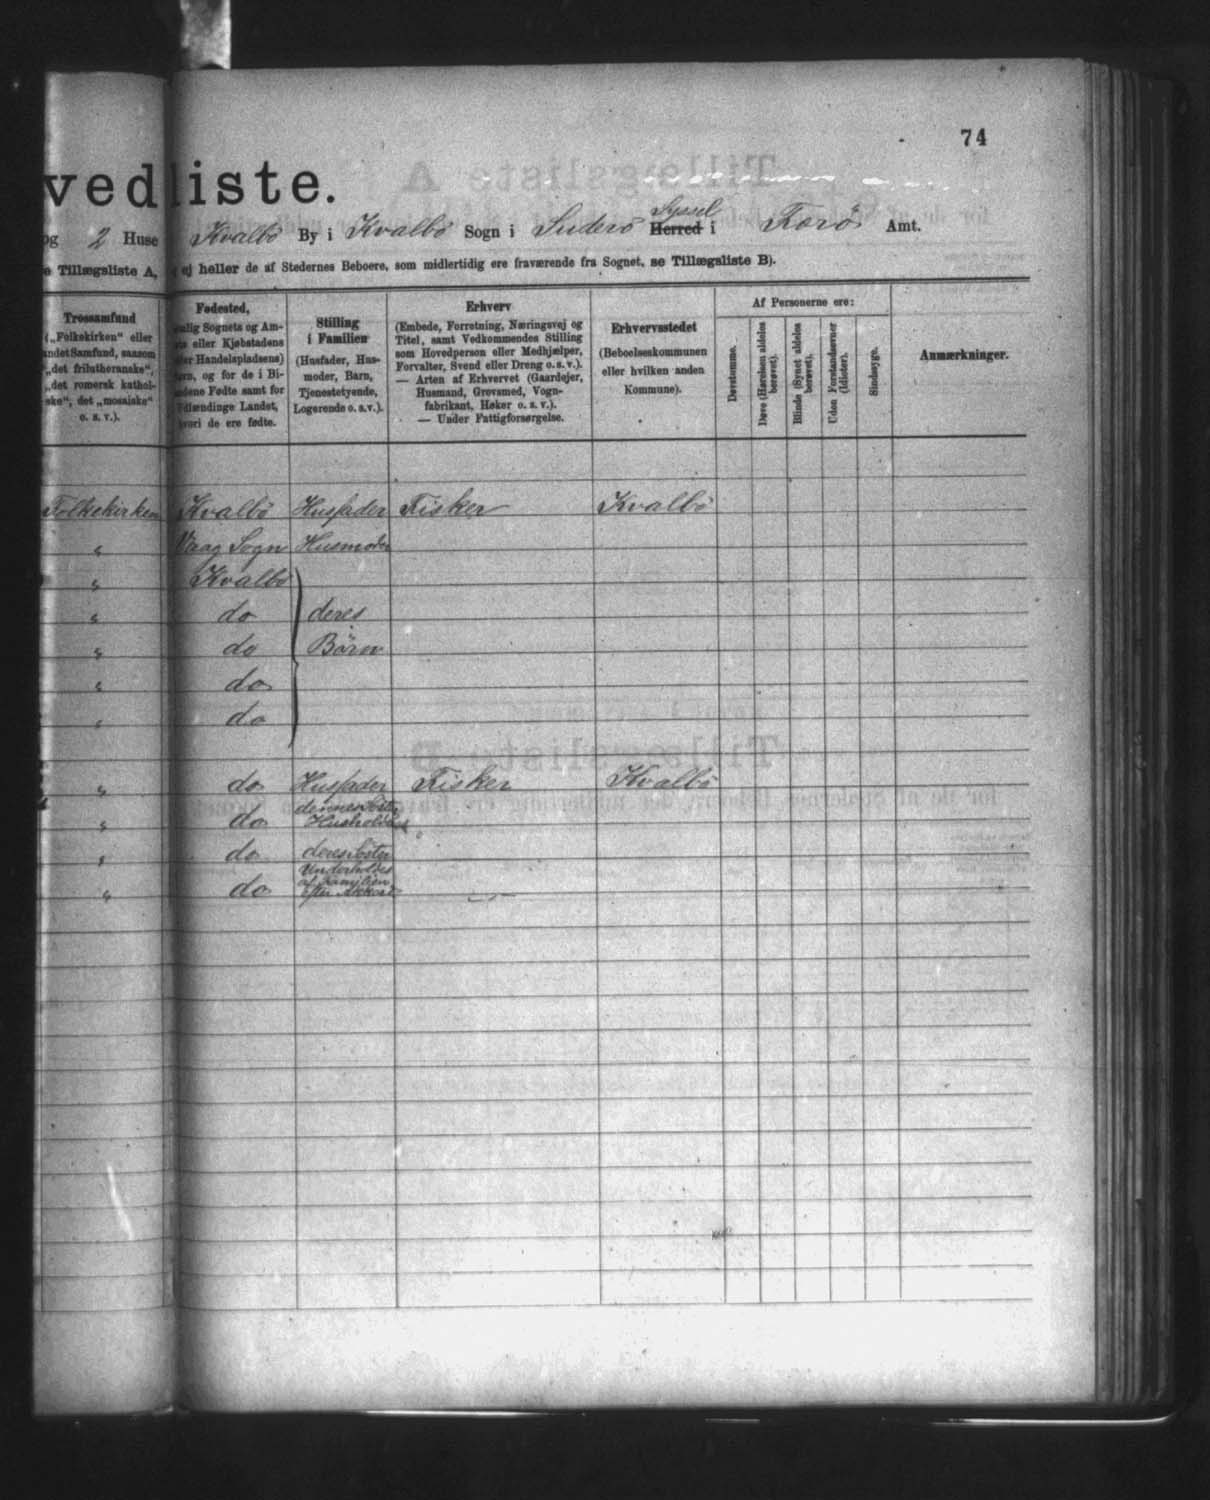 74
vedliste.
og 2 Huse Kvalbø By i Kvalbø Sogn i Suderø Syssel Herred i Færø Amt.
e Tillægsliste A, ej heller de af Stedernes Beboere, som midlertidig ere fraværende fra Sognet, se Tillægsliste B).
Trossamfund
(„Folkekirken“ eller
andetSamfund, saasom
„det frilutheranske“,
„det romersk kathol-
ske“, det „mosaiske“
o. s. v.).
Fødested,
nlig Sognets og Am-
eller Kjøbstadens
ler Handelspladsens)
avn, og for de i Bi-
dene Fødte samt for
Udlændinge Landet,
vori de ere fødte.
Stilling
i Familien
(Husfader, Hus-
moder, Barn,
Tjenestetyende,
Logerende o. s. v.).
Erhverv
(Embede, Forretning, Næringsvej og
Titel, samt Vedkommendes Stilling
som Hovedperson eller Medhjælper,
Forvalter, Svend eller Dreng o. s. v.).
— Arten af Erhvervet (Gaardejer,
Husmand, Grovsmed, Vogn-
fabrikant, Høker o. s. v.).
— Under Fattigforsørgelse.
Erhvervsstedet
(Beboelseskommunen
eller hvilken anden
Kommune).
Af Personerne ere:
Døvstumme.
Døve (Hørelsen aldeles
berøvet).
Blinde (Synet aldeles
berøvet).
Uden Forstandsevner
(Idioter).
Sindssyge.
Anmærkninger.
Folkekirken Kvalbø Husfader Fisker Kvalbø
" Vaag Sogn Husmoder
" Kvalbø
" do deres
" do Børn
" do
" do
" do Husfader Fisker Kvalbø
" do dennes Søster Husholderske
" do deres Søster
" do Underholdes af Familien efter Akkord